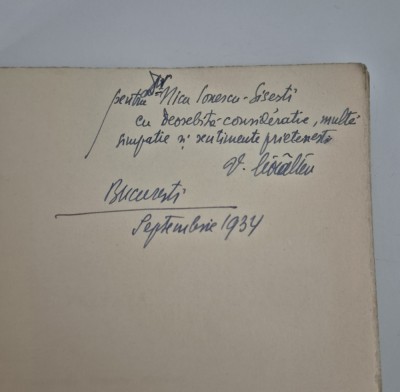 pentru Dr Nicu Ionescu-Sisești
cu deosebită considerație, multă
simpatie și sentimente prietenești
V.
București
Septembrie 1934